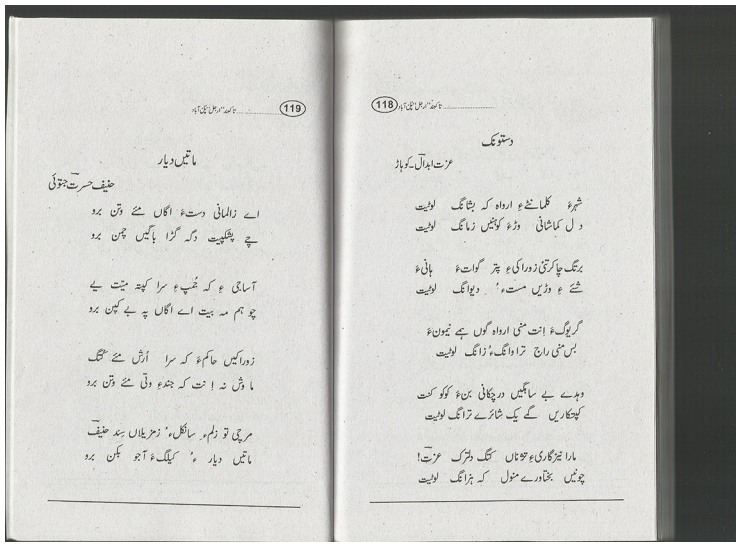 118
دستونک
عزت ابدال۔ کوہاڑ
شہرءَ کلمانٹےءِ ارواہ کہ بشانگ لوٹیت
دل کماشانی وڑءَ کوہنیں زمانگ لوٹیت
برتگ چاکرتئی زوراکیءِ پتر گواتءَ ہانیءَ
شئےءِ وڑیں مستءُ دیوانگ لوٹیت
گریوگءَ اِنت منی ارواہ گوں ہمے نیمونءَ
بس منی راج ترا وانگءُ زانگ لوٹیت
وہدے بے ساہگیں درچکانی بنءَ کوکو کنت
کپتکاریں گے یک شائرے ترانگ لوٹیت
مارا نیزگاریءِ تژناں کتگ دلترک عزتؔ!
چونیں بختاورے منول کہ ہزانگ لوٹیت
119
ماتیں دیار
حنیف حسرتؔ جتوئی
اے زالمانی دستءَ اگاں مئے وتن برو
چے پشکپیت دگہ گڑا باگیں چمن برو
آساجیءِ کہ جُمپءِ سرا کپتہ میّت یے
چو ہم مہ بیت اے اگاں پہ بے کپن برو
زوراکیں حاکمءَ کہ سرا اُرش مئے کتگ
ما وش نہ اِنت کہ جندءِ وتی مئے وتن برو
مرچی تو زلمءِ سانکلءُ زمزیلاں سِند حنیفؔ
ماتیں دیارءُ کیلگءَ آجو بکن برو